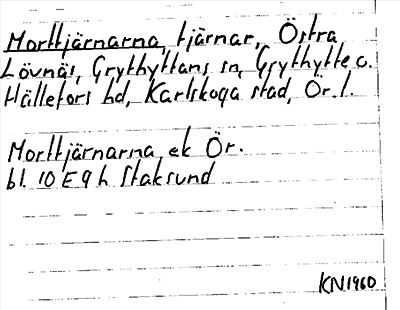 Morttjärnarna, tjärnar, Östra
Lövnäs, Grythyttans sn, Grythytte o.
Hällefors hd, Karlskoga stad, Ör. l.
Morttjärnarna ek Ör.
bl. 10 E 9 h Staksund
KN.1960